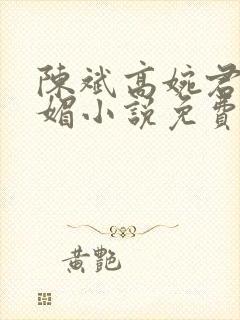 陳斌高婉君
媚小說免費
黃艷